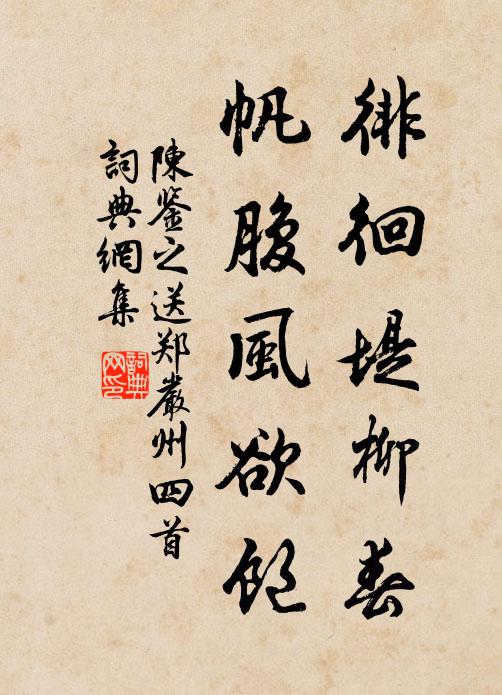 徘徊堤柳春
帆腹風欲飽
陳鉴之送郑嚴州四首
詞典網集
詞典网印